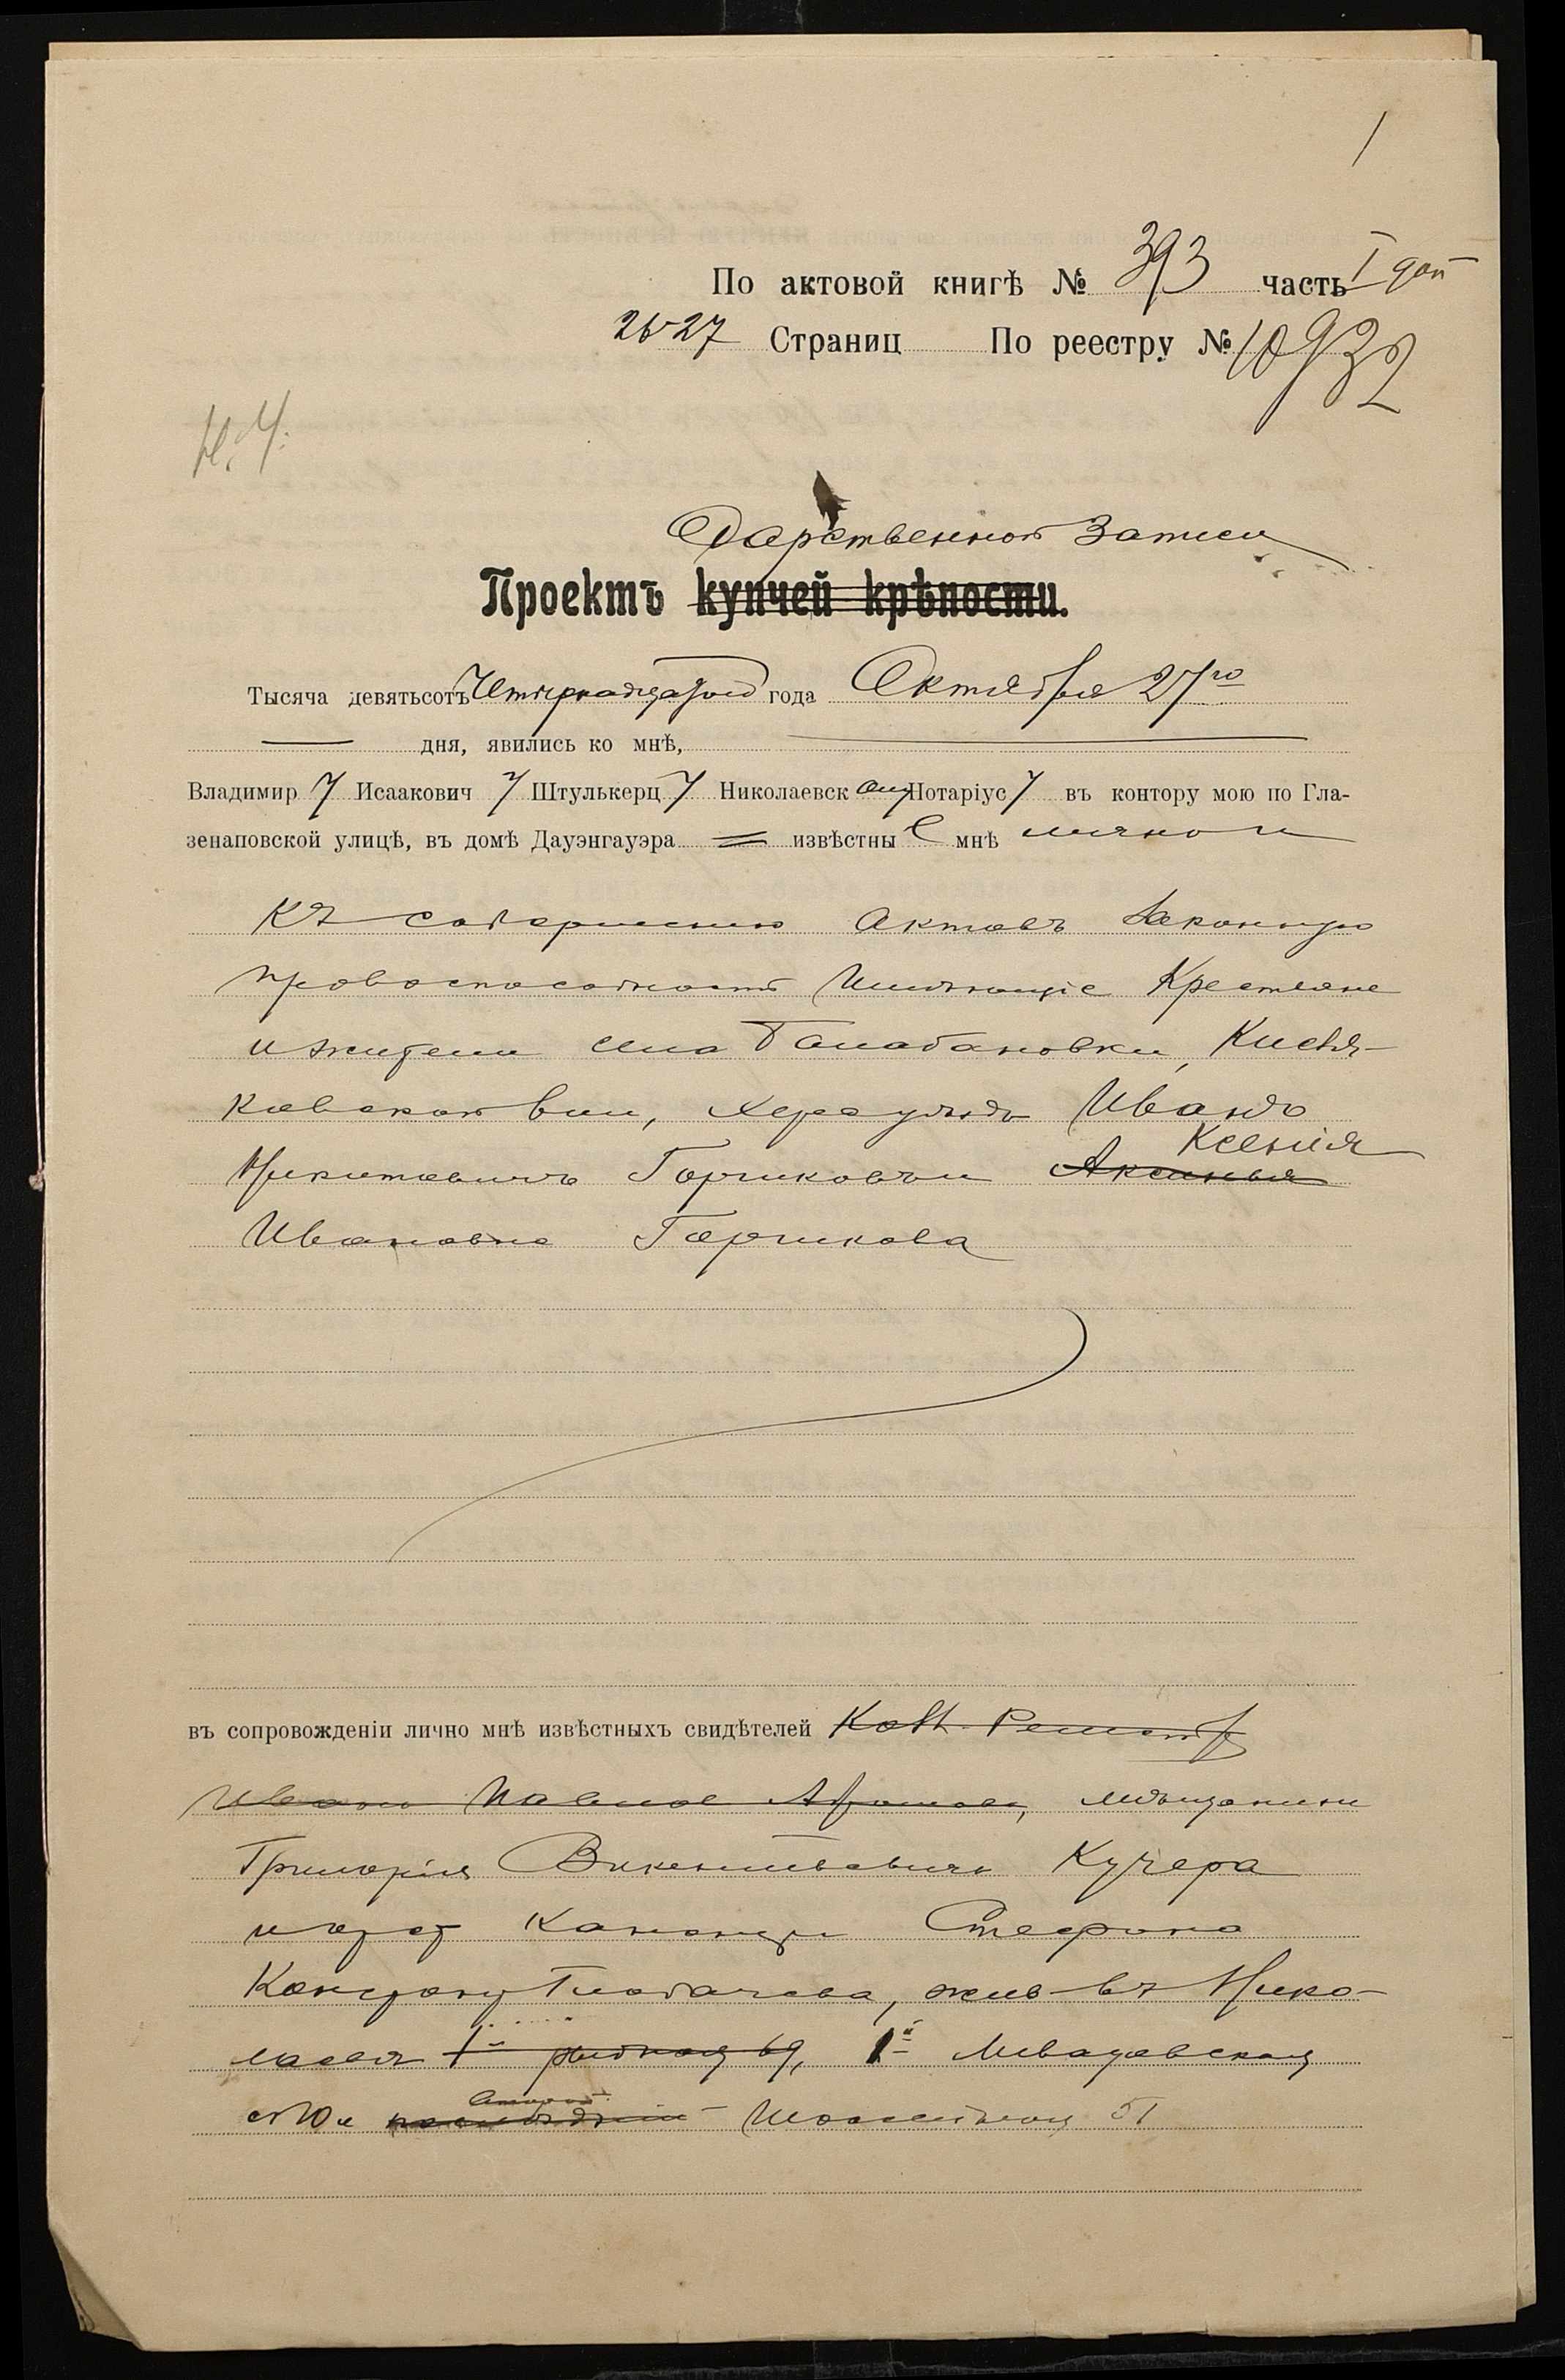 1
По актовой книгѣ № 393 часть I доп
26-27 Страниц По реестру № 10932
Н. Ч.
Дарственной Записи
Проектъ купчей крѣпости.
Тысяча девятьсотъ Четырнадцатого года Октября 27го
дня, явились ко мнѣ,
Владимир Исаакович Штулькерц Николаевск ому Нотаріус въ контору мою по Гла-
зенаповской улицѣ, въ домѣ Дауэнгауэра извѣстны е мнѣ лично и
къ совершенію актовъ законную
правоспособность имѣющіе Крестьяне
и жители села Балабановки, Кисля-
ковской вол, Херс уѣзда Иванъ
Ксенія
Никитавичъ Горчиковъ и Аксинья
Ивановна Горчикова
въ сопровожденіи лично мнѣ извѣстныхъ свидѣтелей Колл. Регистр
Ивана Павлов, мѣщанина
Григорія Викентьевича Кучера
Стефана
жив въ Нико-
лаевѣ 1й рыбной 69, 1й
второй
51